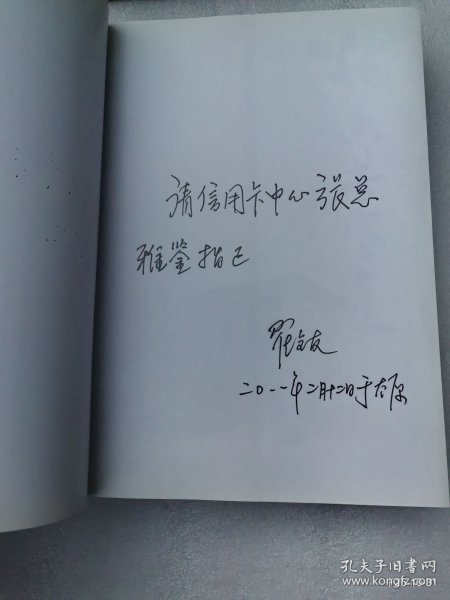 请信用卡中心张总
雅鉴指正
二〇一一年二月十二日于太原
孔夫子旧书网
www.kongfz.com